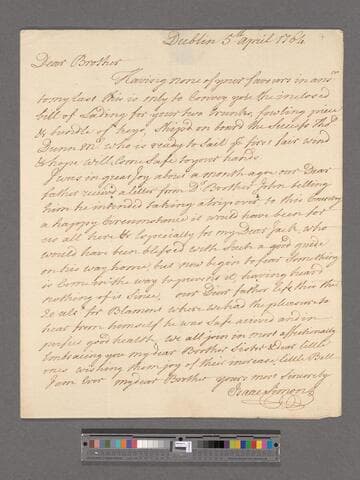 Dublin 5th April 1764
Dear Brother
Having none of your favours in answ
to my last this is only to Convey you the inclosed
bill of Lading for your two trunks, fowling piece
& bundle of keys, Shipd on board the
Dunn Mr who is ready to Sail ye first fair wind
& hope will Come Safe to your hands
I was in great joy about a month ago our Dear
father receiv'd a letter from Dr Brother John telling
him he intended taking a trip over to this Country
a happy Circumstance it would have been for
us all here & Especially for my Dear Jack who
would have been blessed with Such a good guide
on his way home, but now begin to fear Something
is Come in the way to prevent it, having heard
nothing of it Since, our Dear father left this the
for Blamont where we had the pleasure to
hear from himself he was Safe arrived and in
perfect good health, we all join in most affectionately
Embraceing you my dear Brother Sister & dear little
ones wishing them joy of their increase, little Bell
I am Ever my dear Brother yours most Sincerely
Isaac Simon